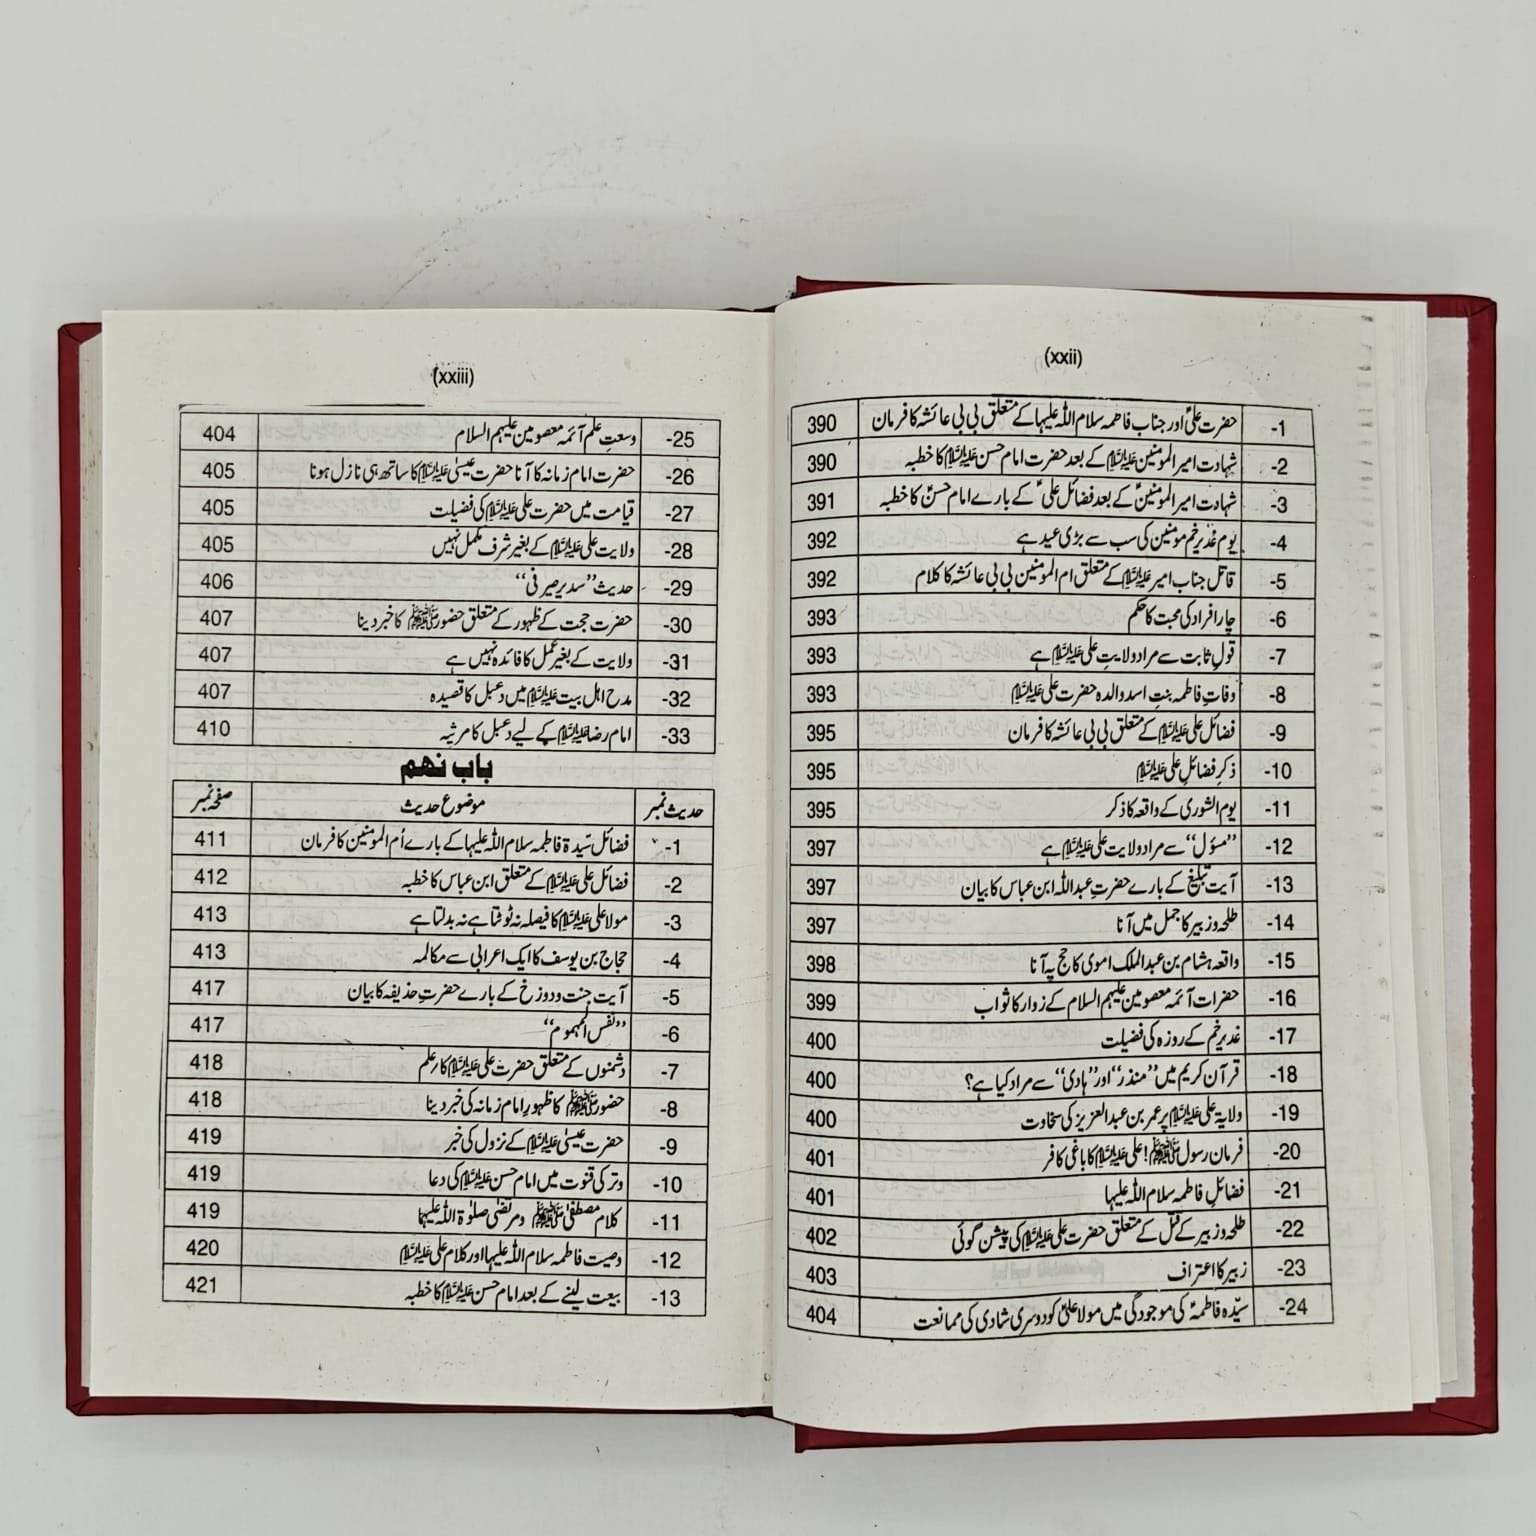 (xxii)
1- حضرت علیؑ اور جناب فاطمہ سلام اللہ علیہا کے متعلق بی بی عائشہ کا فرمان 390
2- شہادت امیر المومنین علیہ السلام کے بعد حضرت امام حسن علیہ السلام کا خطبہ 390
3- شہادت امیر المومنینؑ کے بعد فضائل علیؑ کے بارے امام حسنؑ کا خطبہ 391
4- یوم غدیر خم مومنین کی سب سے بڑی عید ہے 392
5- قاتل جناب امیر علیہ السلام کے متعلق ام المومنین بی بی عائشہ کا کلام 392
6- چار افراد کی محبت کا حکم 393
7- قولِ ثابت سے مراد ولایتِ علی علیہ السلام ہے 393
8- وفاتِ فاطمہ بنتِ اسد والدہ حضرت علی علیہ السلام 393
9- فضائل علی علیہ السلام کے متعلق بی بی عائشہ کا فرمان 395
10- ذکرِ فضائلِ علی علیہ السلام 395
11- یوم الشوری کے واقعہ کا ذکر 395
12- ”مسؤل“ سے مراد ولایت علی علیہ السلام ہے 397
13- آیت تبلیغ کے بارے حضرتِ عبداللہ ابن عباس کا بیان 397
14- طلحہ و زبیر کا جمل میں آنا 397
15- واقعہ ہشام بن عبدالملک اموی کا حج پہ آنا 398
16- حضرات آئمہ معصومین علیہم السلام کے زوار کا ثواب 399
17- غدیر خم کے روزہ کی فضیلت 400
18- قرآن کریم میں ”منذر“ اور ”ہادی“ سے مراد کیا ہے؟ 400
19- ولایۃ علی علیہ السلام پر عمر بن عبدالعزیز کی سخاوت 400
20- فرمان رسول ﷺ! علی علیہ السلام کا باغی کافر 401
21- فضائلِ فاطمہ سلام اللہ علیہا 401
22- طلحہ و زبیر کے قتل کے متعلق حضرت علی علیہ السلام کی پیشن گوئی 402
23- زبیر کا اعتراف 403
24- سیّدہ فاطمہؑ کی موجودگی میں مولا علیؑ کو دوسری شادی کی ممانعت 404
(xxiii)
25- وسعتِ علم آئمہ معصومین علیہم السلام 404
26- حضرت امام زمانہ کا آنا حضرت عیسیٰ علیہ السلام کا ساتھ ہی نازل ہونا 405
27- قیامت میں حضرت علی علیہ السلام کی فضیلت 405
28- ولایت علی علیہ السلام کے بغیر شرف مکمل نہیں 405
29- حدیث ”سدیر صیرفی“ 406
30- حضرت حجت کے ظہور کے متعلق حضور ﷺ کا خبر دینا 407
31- ولایت کے بغیر عمل کا فائدہ نہیں ہے 407
32- مدح اہل بیت علیہ السلام میں دعبل کا قصیدہ 407
33- امام رضا علیہ السلام کے لیے دعبل کا مرثیہ 410
باب نھم
حدیث نمبر موضوع حدیث صفحہ نمبر
1- فضائل سیّدۃ فاطمہ سلام اللہ علیہا کے بارے اُم المومنین کا فرمان 411
2- فضائل علی علیہ السلام کے متعلق ابن عباس کا خطبہ 412
3- مولا علی علیہ السلام کا فیصلہ نہ ٹوٹتا ہے نہ بدلتا ہے 413
4- حجاج بن یوسف کا ایک اعرابی سے مکالمہ 413
5- آیت جنت و دوزخ کے بارے حضرتِ حذیفہ کا بیان 417
6- ”نفس المہموم“ 417
7- دشمنوں کے متعلق حضرت علی علیہ السلام کا علم 418
8- حضور ﷺ کا ظہورِ امام زمانہ کی خبر دینا 418
9- حضرت عیسیٰ علیہ السلام کے نزول کی خبر 419
10- وتر کی قنوت میں امام حسن علیہ السلام کی دعا 419
11- کلام مصطفیٰ ﷺ و مرتضیٰ صلوٰۃ اللہ علیہا 419
12- وصیت فاطمہ سلام اللہ علیہا اور کلام علی علیہ السلام 420
13- بیعت لینے کے بعد امام حسن علیہ السلام کا خطبہ 421